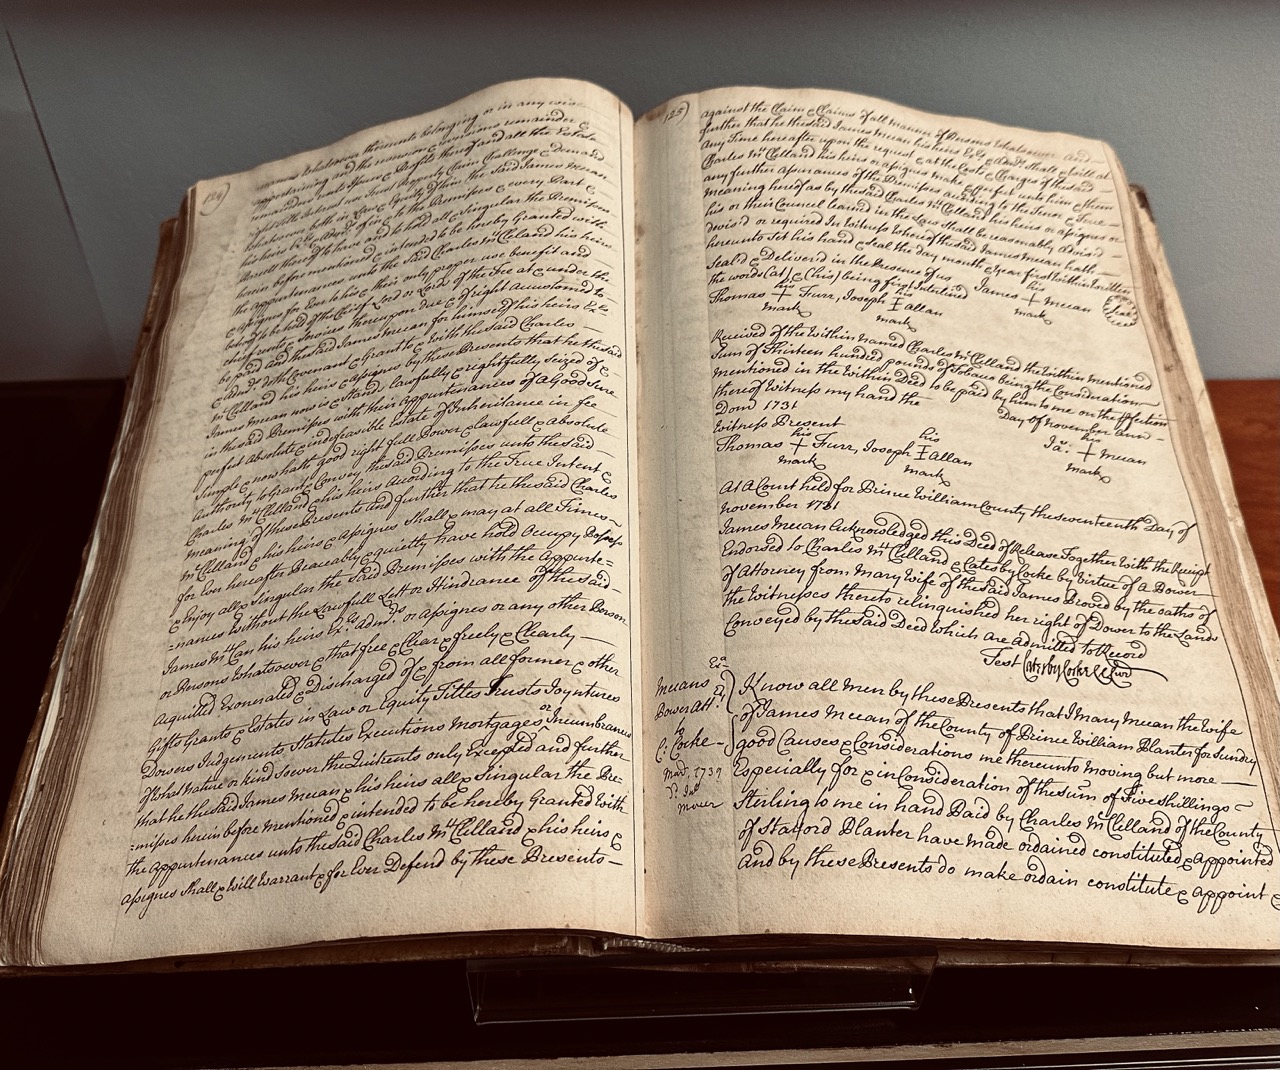 124)
whatsoever thereunto belonging or in any wise
appertaining and the reversion & reversions remainder &
remainders rents Issues & Profits thereof and all the Estate
right title Interest use Trust Property Claim Challenge & demand
whatsoever both in Law & Equity of him the said James Mean
his heirs Exrs Admrs of in & to the Premisses & every Part &
Parcell thereof to have and to hold all & Singular the Premisses
herein before mentioned & intended to be hereby Granted with
the appurtenances unto the said Charles McCleland his heirs
& assignes for Ever to his & their only proper use benefit and
behoof to be held of the Chief Lord or Lords of the Fee at & under the
chief rents & services thereupon due & of right accustomed to
be paid and the said James Mean for himself his heirs Exrs
& Admrs doth Covenant & Grant to & with the said Charles
McClelland his heirs & assignes by these Presents that he the said
James Mean now is & Stand, lawfully & rightfully seized of &
in the said Premisses with their appurtenances of a Good Sure
perfect absolute & indefeasible Estate of Inheritance in fee
Simple & now hath good right full Power & lawfull & absolute
Authority to Grant & Convey the said Premisses unto the said
Charles McClelland & his heirs Acording to the True Intent &
meaning of these Presents and further that he the said Charles
McClelland & his heirs & assignes Shall & may at all Times
for Ever hereafter Peaceably & quietly have hold Occupy Possess
& Enjoy all & Singular the said Premisses with the Appurte=
=nances without the Lawfull Lett or Hindrance of the said
James McCan his heirs Exrs Admrs or assignes or any other Person
or Persons whatsoever & that free & Clear & freely & Clearly
Acquitted Exonerated & Discharged of & from all former & other
Gifts Grants & Estates in Law or Equity Titles Trusts Joyntures
Dowers Judgements Statutes Executions Mortgages or Incumbrances
of what Nature or kind soever the Quitrents only Excepted and further
that he the said James Mean & his heirs all & Singular the Pre=
=misses herein before mentioned & intended to be hereby Granted with
the appurtenances unto the said Charles McClelland & his heirs &
assignes Shall & Will Warrant & for Ever Defend by these Presents
125)
against the Claim & Claims of all manner of Persons whatsoever And
further that he the said James Mean his heirs Exrs & Admrs Shall & will at
any Time hereafter upon the request & at the Costs & Charges of the said
Charles McClelland his heirs or assignes make & perfect unto him & them
any further assurances of the Premisses according to the Tenor & True
meaning hereof as by the said Charles McClelland his heirs or assignes or
his or their Council learned in the Law Shall be reasonably advis'd
devis'd or required In Witness Whereof the said James Mean hath
hereunto Set his hand & Seal the day month & year first within written
Seal'd & Delivered in the Presence of us
the words (at) & (his) being first Interlined
his
Thomas + Furr, Joseph I allan
mark mark
his
James + Mean
mark
Seal
Received of the Within Named Charles McClelland the Within Mentioned
Sum of Thirteen hundred pounds of Tobacco being the Consideration
mentioned in the Within Deed to be paid by him to me on the Effection
thereof Witness my hand the Day of November Ann
Dom 1731
Witness Present
his his his
Thomas + Furr, Joseph I allan Ja: + mean
mark mark mark
At a Court held for Prince William County the seventeenth Day of
November 1731
James Mean Acknowledged this Deed of Release Together with the Receipt
Endorsed to Charles McClelland & Catesby Cocke by Virtue of a Power
of Attorney from Mary Wife of the said James Proved by the oaths of
the Witnesses thereto relinquished her right of Dower to the Lands
Conveyed by the said Deed which are admitted to Record
Test Catesby Cocke Cl Cur
Exa
Means
Power Att:
to
C: Cocke
Know all men by these Presents that I Mary Mean the Wife
of James Mean of the County of Prince William Planter for Sundry
good Causes & Considerations me thereunto moving but more
Especially for & in Consideration of the sum of Five Shillings
Sterling to me in hand Paid by Charles McClelland of the County
of Stafford Planter have made ordained constituted & appointed
And by these Presents do make ordain constitute & appoint &